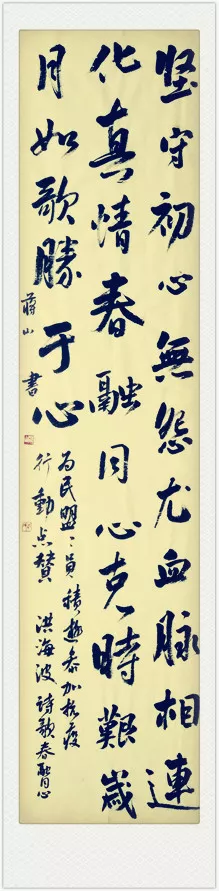 坚守初心無怨尤血脉相連
化真情春融同心克時艱歲
月如歌勝于心
为民盟〻員積極参加抗疫
行動点赞 洪海波詩歌春融同心
蒋山書